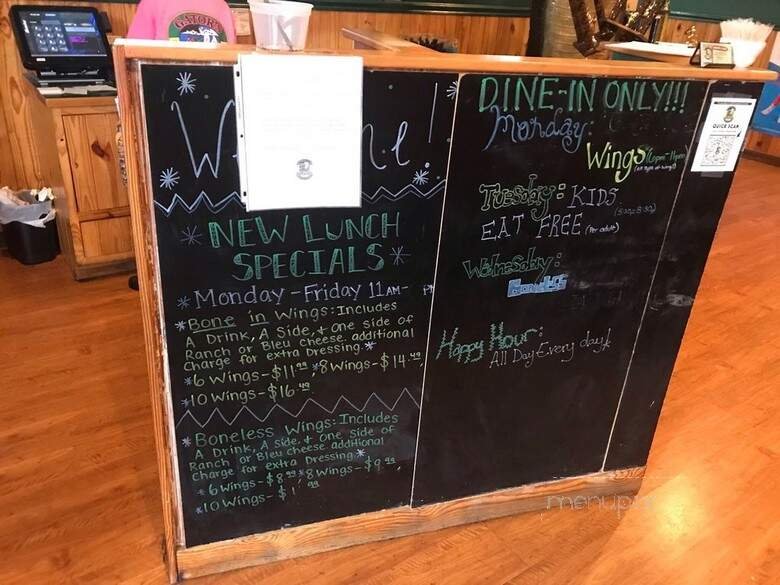 GATOR'S
NEW LUNCH
SPECIALS *
* Monday - Friday 11AM-
* Bone in Wings: Includes
A Drink, A Side, + One side of
Ranch or Bleu cheese. additional
Charge for extra Dressing. *
*6 Wings-$11.99 *8 Wings-$14.49
*10 Wings-$16.49
* Boneless Wings: Includes
A Drink, A side, + one side of
Ranch or Bleu cheese additional
charge for extra Dressing. *
*6 Wings-$8.99 *8 Wings-$9.99
*10 Wings-$
DINE-IN ONLY!!!
Monday:
Wings
Tuesday: KIDS
EAT FREE (Per adult)
Wednesday:
Happy Hour:
All Day Every day *
QUICK SCAN